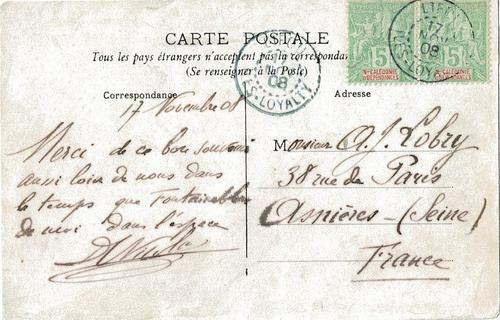 CARTE POSTALE
Tous les pays étrangers n'acceptent pas la correspondan
(Se renseigner à la Poste)
Correspondance
Adresse
17 Novembre 08
Merci de ce bon souvenir
aussi loin de nous dans
le temps que Fontainebleau
de moi dans l'espace
Monsieur A. J. Lobry
38 rue de Paris
Asnières - (Seine)
France
LIFOU
17
08
ILES-LOYALTY
08
ES-LOYALTY
5
5
Nlle CALÉDONIE
ET DÉPENDANCES
Nlle CALÉDONIE